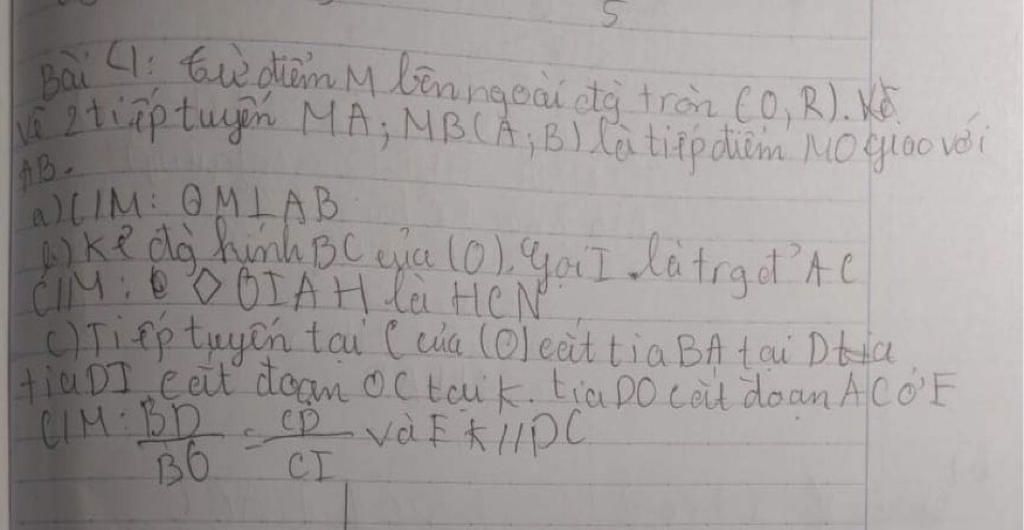 5
Bài 4: Từ điểm M bên ngoài đtg tròn (O,R). Kẻ
vẽ 2 tiếp tuyến MA; MB(A;B) là tiếp điểm MO giao với
AB.
a) C/M: OM⊥AB
b) Kẻ đg kính BC của (O). Gọi I là trg đ' AC
C/M: ◇ OIAH là HCN
c) Tiếp tuyến tại C của (O) cắt tia BA tại D
tia DI cắt đoạn OC tại K. tia DO cắt đoạn AC ở F
C/M: BD/BO = CD/CI và FK//DC